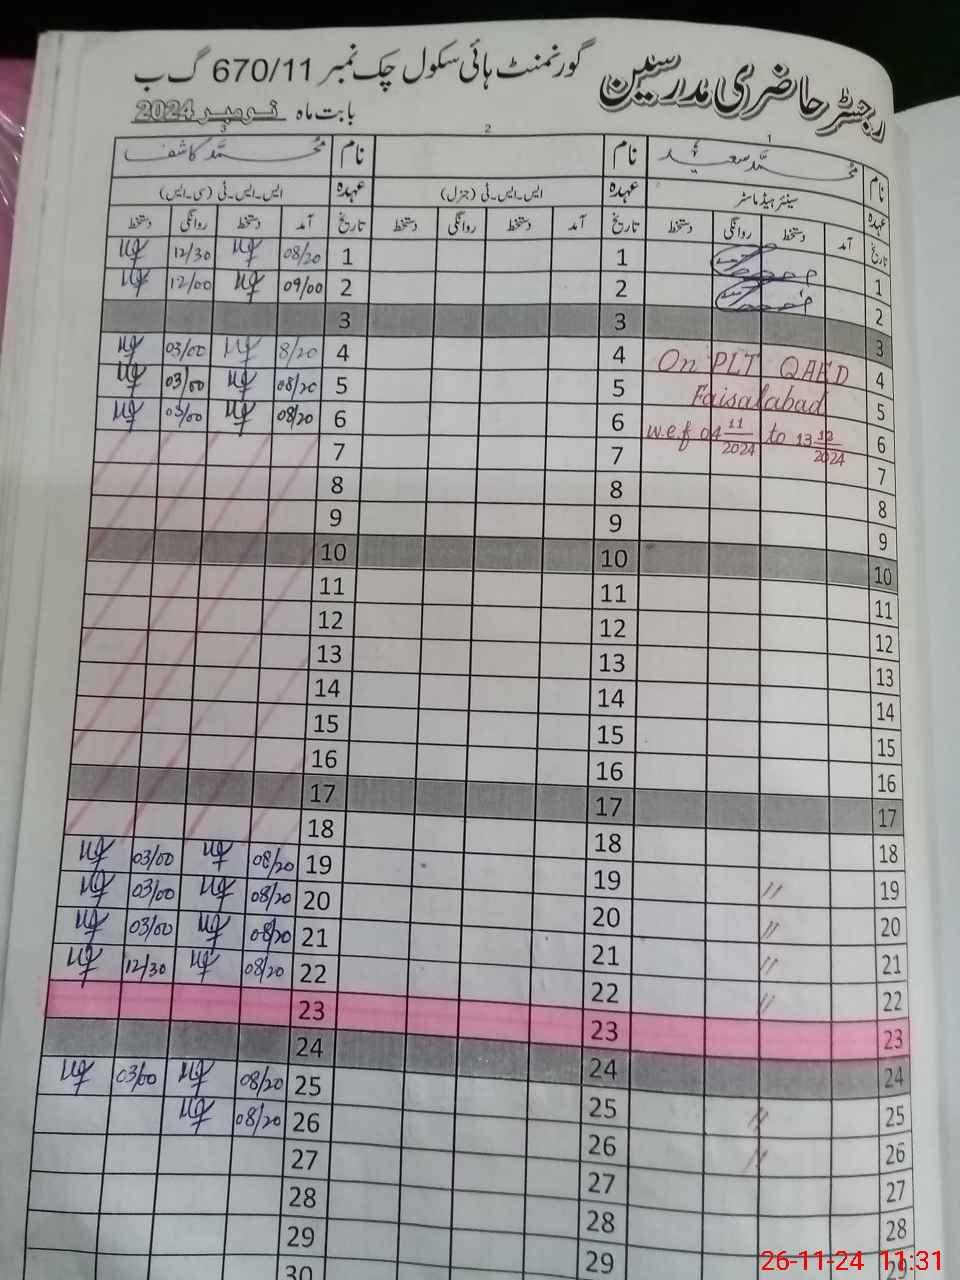 رجسٹر حاضری مدرسین گورنمنٹ ہائی سکول چک نمبر 670/11 گ ب
بابت ماہ نومبر 2024
1 2 3
نام محمد سعید نام نام محمد کاشف
عہدہ سینئر ہیڈ ماسٹر عہدہ ایس۔ایس۔ٹی (جنرل) عہدہ ایس۔ایس۔ٹی (سی۔ایس)
تاریخ آمد دستخط روانگی دستخط تاریخ آمد دستخط روانگی دستخط تاریخ آمد دستخط روانگی دستخط
1 1 1 08/20 12/30
2 2 2 09/00 12/00
3 3 3
4 4 4 8/20 03/00
On PLT QAED
5 5 5 08/20 03/00
Faisalabad
6 6 6 08/20 03/00
w.e.f 04 11/2024 to 13 12/2024
7 7 7
8 8 8
9 9 9
10 10 10
11 11 11
12 12 12
13 13 13
14 14 14
15 15 15
16 16 16
17 17 17
18 18 18
19 〃 19 19 08/20 03/00
20 〃 20 20 08/20 03/00
21 〃 21 21 08/20 03/00
22 〃 22 22 08/20 12/30
23 23 23
24 24 24
25 〃 25 25 08/20 03/00
26 〃 26 26 08/20
27 27 27
28 28 28
29 29 29
30
26-11-24 11:31